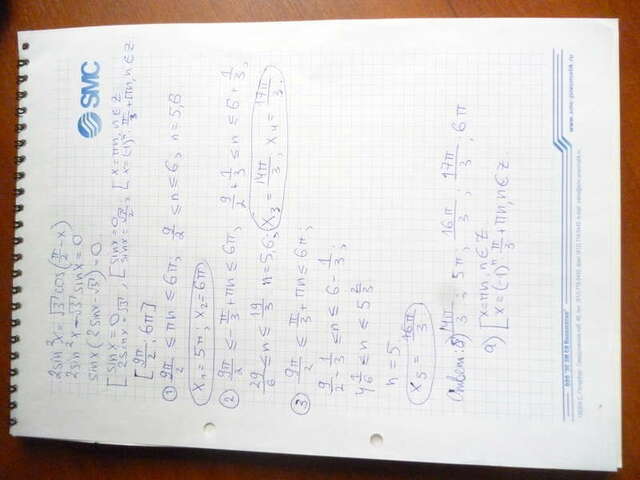 SMC
2sin²x = √3 cos(π/2 - x)
2sin²x - √3 sinx = 0
sinx(2sinx - √3) = 0
[sinx = 0, 2sinx = √3, [sinx = 0, sinx = √3/2, [x = πn, n ∈ Z, x = (-1)ⁿ · π/3 + πn, n ∈ Z
[9π/2; 6π]
① 9π/2 ≤ πn ≤ 6π; 9/2 ≤ n ≤ 6; n = 5,6
x₁ = 5π; x₂ = 6π
② 9π/2 ≤ -π/3 + πn ≤ 6π; 9/2 + 1/3 ≤ n ≤ 6 + 1/3;
29/6 ≤ n ≤ 19/3 n = 5,6; x₃ = 14π/3; x₄ = 17π/3
③ 9π/2 ≤ π/3 + πn ≤ 6π;
9/2 - 1/3 ≤ n ≤ 6 - 1/3;
4 1/6 ≤ n ≤ 5 2/3
n = 5
x₅ = 16π/3
Ответ: б) 14π/3; 5π; 16π/3; 17π/3; 6π
а) [x = πn, n ∈ Z
x = (-1)ⁿ π/3 + πn, n ∈ Z
www.smc-pneumatik.ru